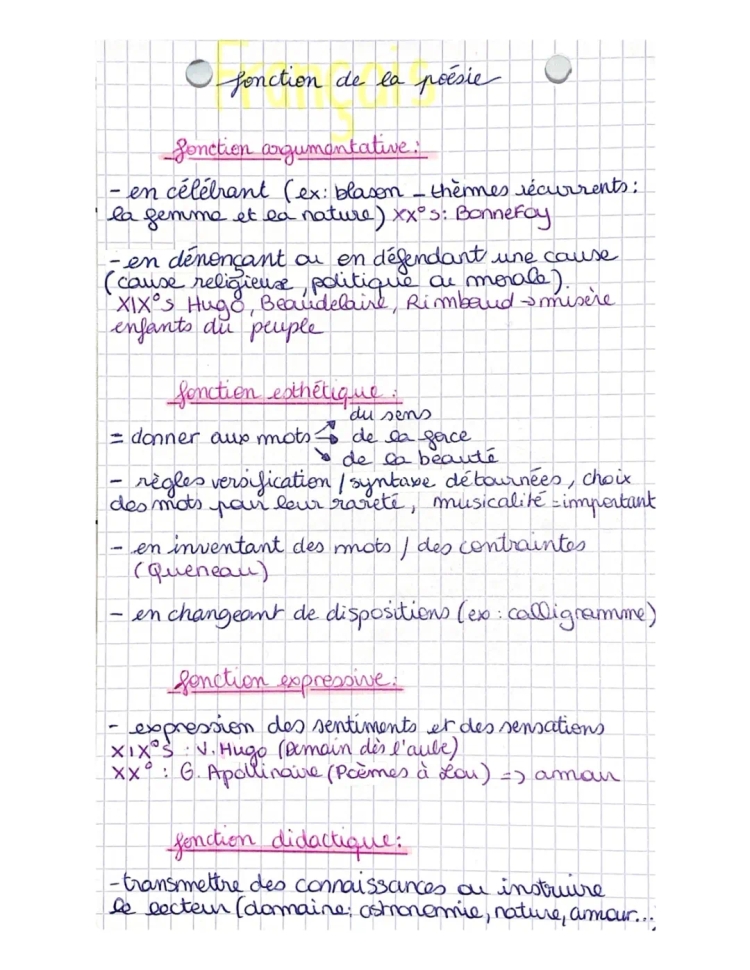 Français
fonction de la poésie
fonction argumentative :
- en célébrant (ex: blason - thèmes récurrents :
la femme et la nature) XX°s: Bonnefoy
- en dénonçant ou en défendant une cause
(cause religieuse, politique ou morale).
XIX°s Hugo, Beaudelaire, Rimbaud → misère
enfants du peuple
fonction esthétique :
du sens
= donner aux mots → de la force
de la beauté
- règles versification / syntaxe détournées, choix
des mots pour leur rareté, musicalité = important
- en inventant des mots / des contraintes
(Queneau)
- en changeant de dispositions (ex : calligramme)
fonction expressive :
- expression des sentiments et des sensations
XIX°S : V. Hugo (Demain dès l'aube)
XX° : G. Apollinaire (Poèmes à Lou) => amour
fonction didactique :
- transmettre des connaissances ou instruire
le lecteur (domaine: astronomie, nature, amour...